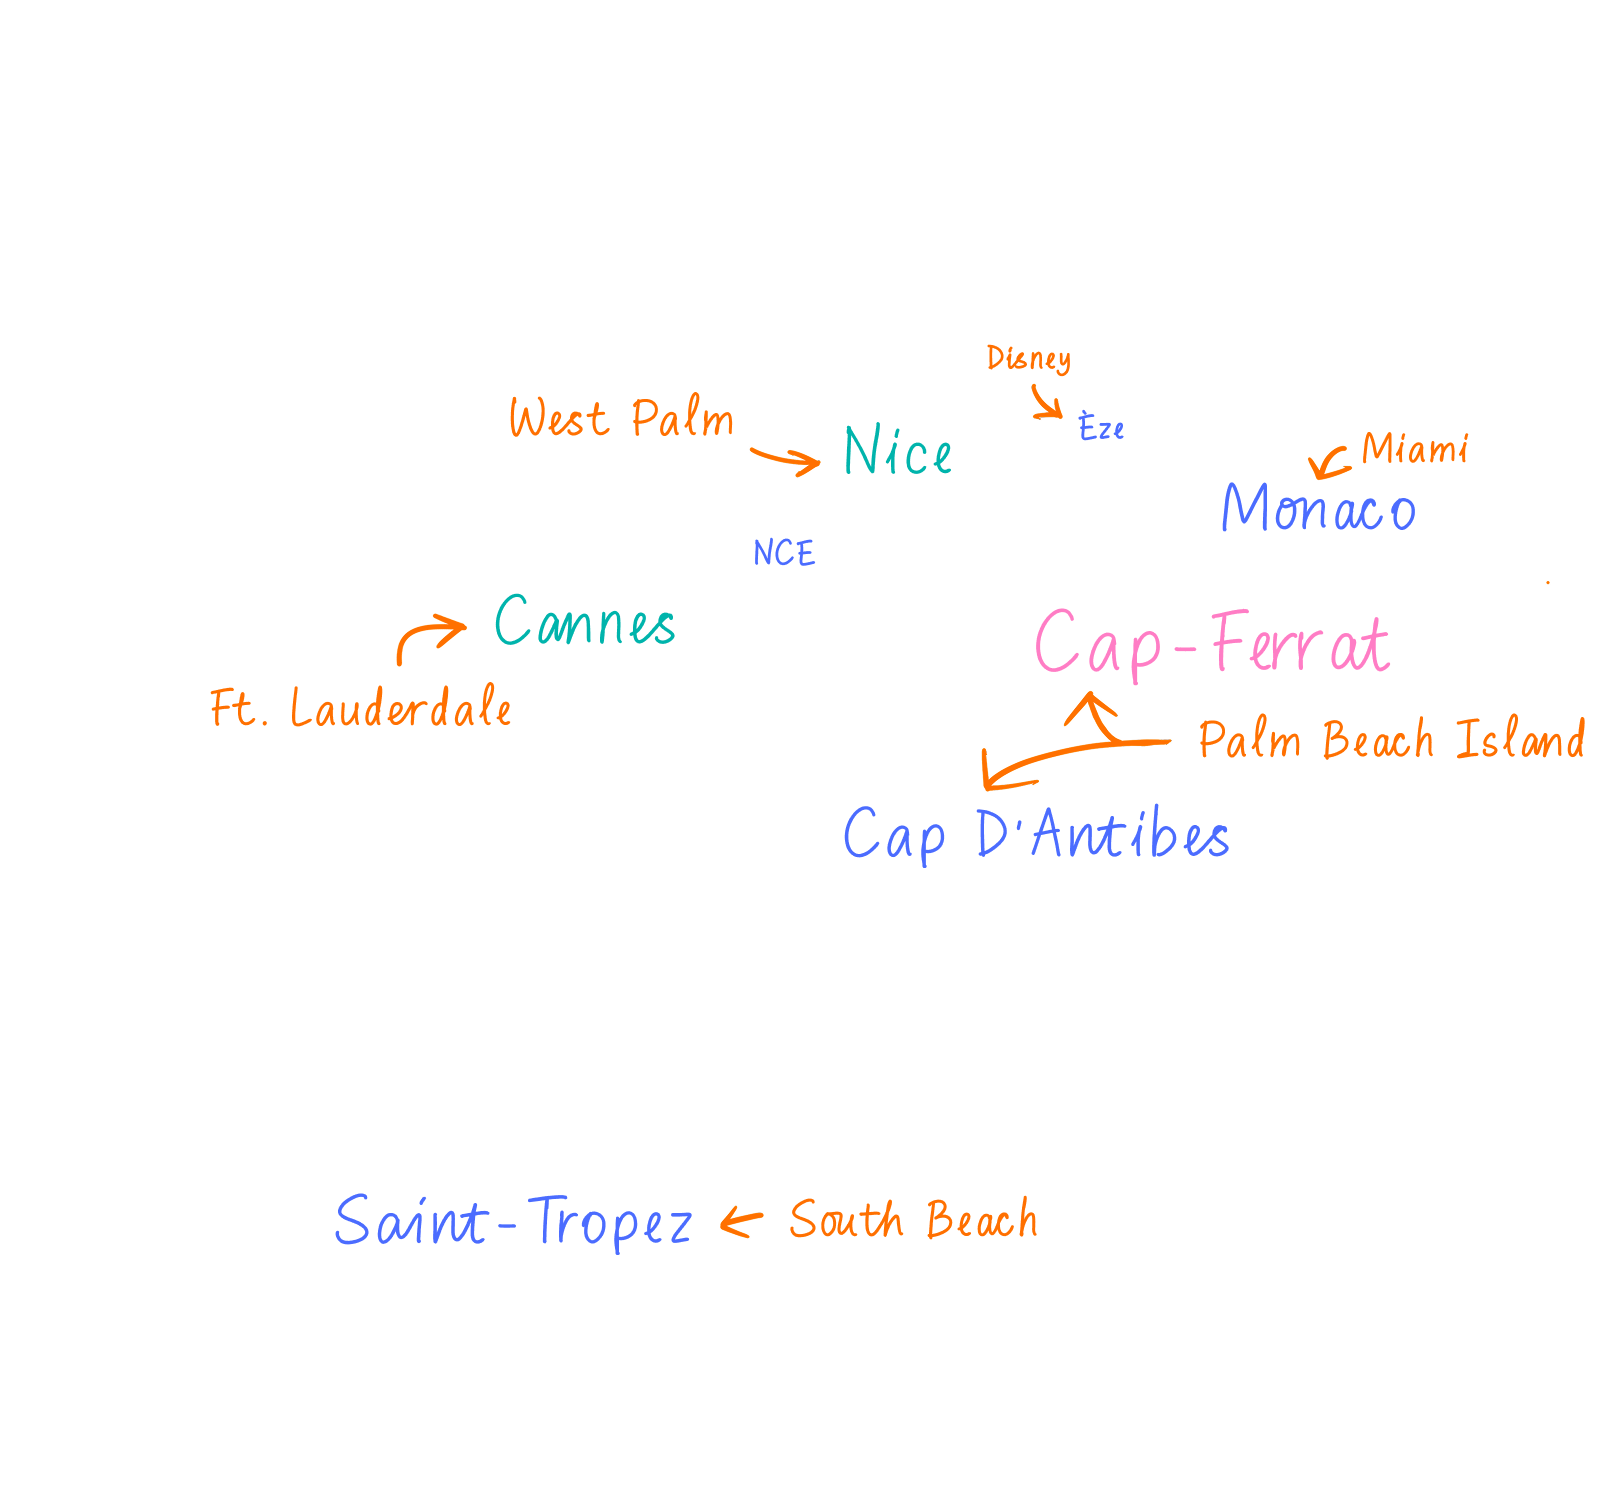 Disney
West Palm
Nice
Èze
Miami
Monaco
NCE
Cannes
Cap-Ferrat
Ft. Lauderdale
Palm Beach Island
Cap D'Antibes
Saint-Tropez
South Beach